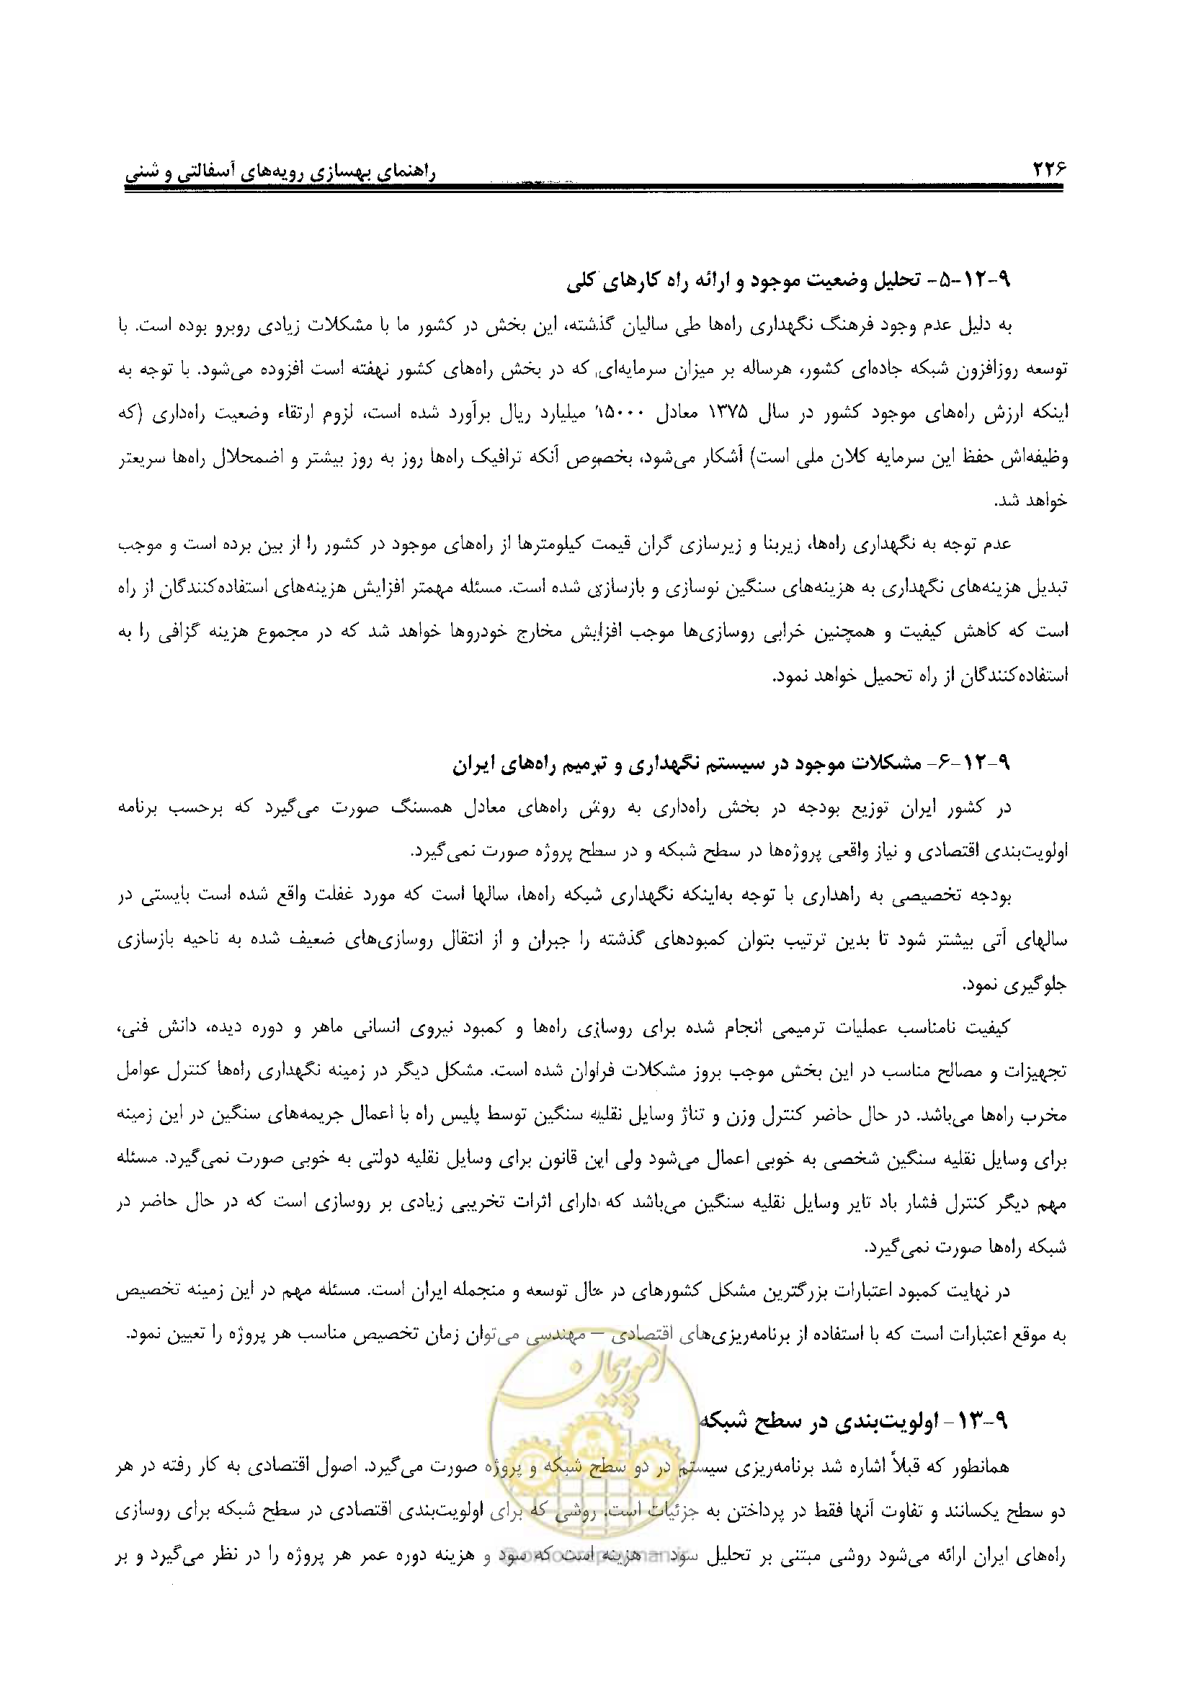 ۲۲۶
راهنمای بهسازی رویه‌های آسفالتی و شنی
۹-۱۲-۵- تحلیل وضعیت موجود و ارائه راه کارهای کلی
به دلیل عدم وجود فرهنگ نگهداری راه‌ها طی سالیان گذشته، این بخش در کشور ما با مشکلات زیادی روبرو بوده است. با
توسعه روزافزون شبکه جاده‌ای کشور، هرساله بر میزان سرمایه‌ای که در بخش راه‌های کشور نهفته است افزوده می‌شود. با توجه به
اینکه ارزش راه‌های موجود کشور در سال ۱۳۷۵ معادل ۱۵۰۰۰ میلیارد ریال برآورد شده است، لزوم ارتقاء وضعیت راه‌داری (که
وظیفه‌اش حفظ این سرمایه کلان ملی است) آشکار می‌شود، بخصوص آنکه ترافیک راه‌ها روز به روز بیشتر و اضمحلال راه‌ها سریعتر
خواهد شد.
عدم توجه به نگهداری راه‌ها، زیربنا و زیرسازی گران قیمت کیلومترها از راه‌های موجود در کشور را از بین برده است و موجب
تبدیل هزینه‌های نگهداری به هزینه‌های سنگین نوسازی و بازسازی شده است. مسئله مهمتر افزایش هزینه‌های استفاده‌کنندگان از راه
است که کاهش کیفیت و همچنین خرابی روسازی‌ها موجب افزایش مخارج خودروها خواهد شد که در مجموع هزینه گزافی را به
استفاده‌کنندگان از راه تحمیل خواهد نمود.
۹-۱۲-۶- مشکلات موجود در سیستم نگهداری و ترمیم راه‌های ایران
در کشور ایران توزیع بودجه در بخش راه‌داری به روش راه‌های معادل همسنگ صورت می‌گیرد که برحسب برنامه
اولویت‌بندی اقتصادی و نیاز واقعی پروژه‌ها در سطح شبکه و در سطح پروژه صورت نمی‌گیرد.
بودجه تخصیصی به راهداری با توجه به‌اینکه نگهداری شبکه راه‌ها، سالها است که مورد غفلت واقع شده است بایستی در
سالهای آتی بیشتر شود تا بدین ترتیب بتوان کمبودهای گذشته را جبران و از انتقال روسازی‌های ضعیف شده به ناحیه بازسازی
جلوگیری نمود.
کیفیت نامناسب عملیات ترمیمی انجام شده برای روسازی راه‌ها و کمبود نیروی انسانی ماهر و دوره دیده، دانش فنی،
تجهیزات و مصالح مناسب در این بخش موجب بروز مشکلات فراوان شده است. مشکل دیگر در زمینه نگهداری راه‌ها کنترل عوامل
مخرب راه‌ها می‌باشد. در حال حاضر کنترل وزن و تناژ وسایل نقلیه سنگین توسط پلیس راه با اعمال جریمه‌های سنگین در این زمینه
برای وسایل نقلیه سنگین شخصی به خوبی اعمال می‌شود ولی این قانون برای وسایل نقلیه دولتی به خوبی صورت نمی‌گیرد. مسئله
مهم دیگر کنترل فشار باد تایر وسایل نقلیه سنگین می‌باشد که دارای اثرات تخریبی زیادی بر روسازی است که در حال حاضر در
شبکه راه‌ها صورت نمی‌گیرد.
در نهایت کمبود اعتبارات بزرگترین مشکل کشورهای در حال توسعه و منجمله ایران است. مسئله مهم در این زمینه تخصیص
به موقع اعتبارات است که با استفاده از برنامه‌ریزی‌های اقتصادی – مهندسی می‌توان زمان تخصیص مناسب هر پروژه را تعیین نمود.
امور پیمان
۹-۱۳- اولویت‌بندی در سطح شبکه
همانطور که قبلاً اشاره شد برنامه‌ریزی سیستم در دو سطح شبکه و پروژه صورت می‌گیرد. اصول اقتصادی به کار رفته در هر
دو سطح یکسانند و تفاوت آنها فقط در پرداختن به جزئیات است. روشی که برای اولویت‌بندی اقتصادی در سطح شبکه برای روسازی
راه‌های ایران ارائه می‌شود روشی مبتنی بر تحلیل سود – هزینه است که سود و هزینه دوره عمر هر پروژه را در نظر می‌گیرد و بر